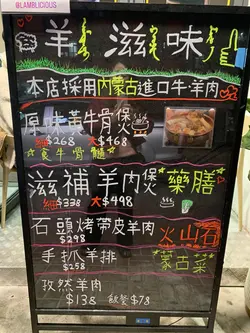 @LAMBLICIOUS
羊滋味
本店採用內蒙古進口牛羊肉
原味羊牛骨煲
細$268 大$468
食牛骨髓
滋補羊肉煲 藥膳
細$338 大$498
石頭烤帶皮羊肉 火山石
$298
手抓羊排 蒙古菜
$258
孜然羊肉
$138 飲餐$78